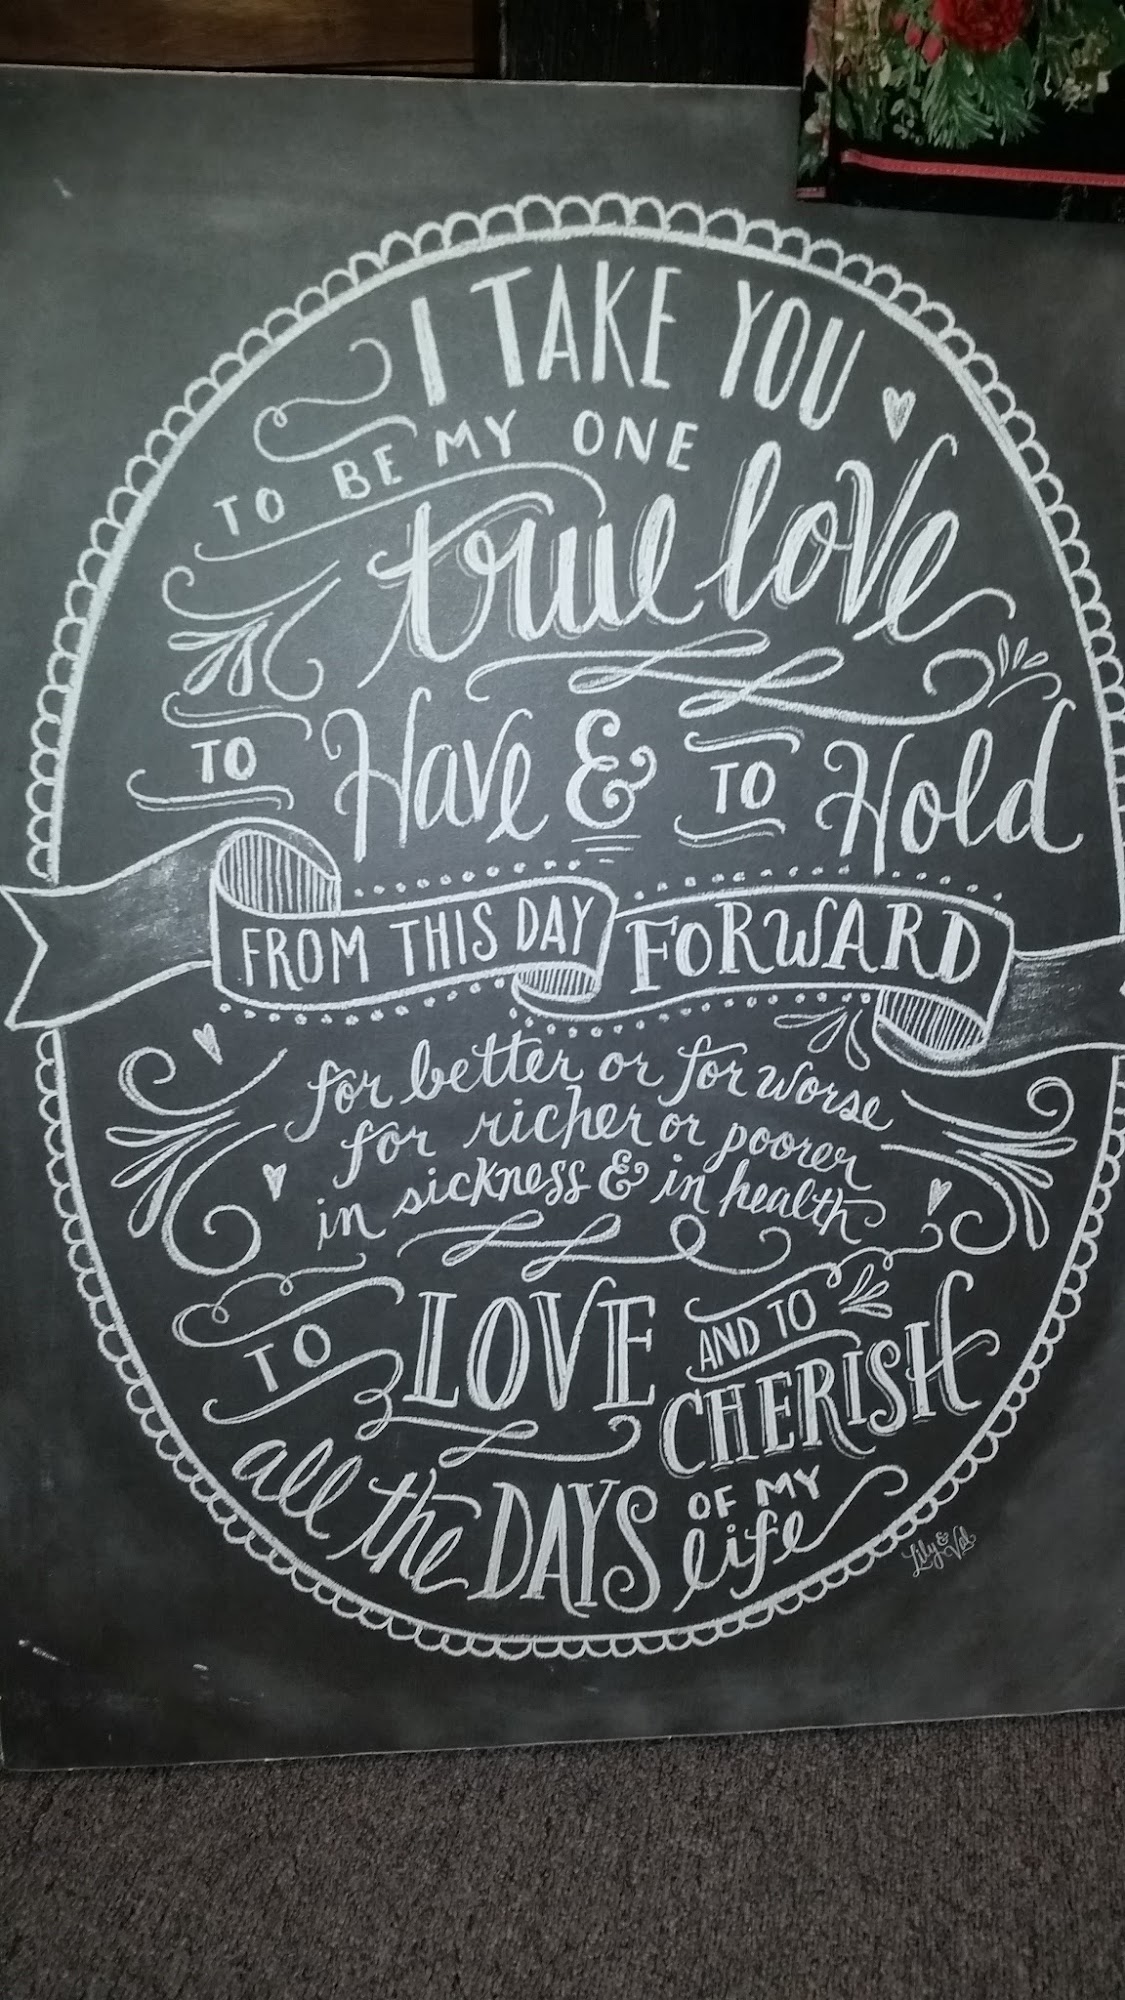 I TAKE YOU
TO BE MY ONE
true love
TO Have & TO Hold
FROM THIS DAY FORWARD
for better or for worse
for richer or poorer
in sickness & in health
TO LOVE AND TO
CHERISH
all the DAYS OF MY
life
Lily & Val